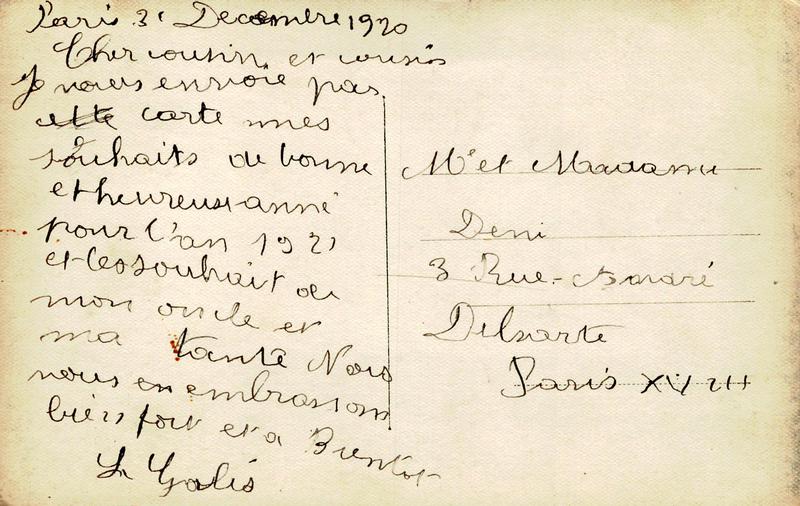 Paris 3i Decembre 1920
Cher cousin et cousis
Je vous envoie pas
cette carte mes
souhaits de bonne
et heureuse anné
pour l'an 1921
et les souhait de
mon oncle et
ma tante Nous
vous en embrassons
bien fort et a Bientot
Mr et Madame
Deni
3 Rue André
Delsarte
Paris XVIII